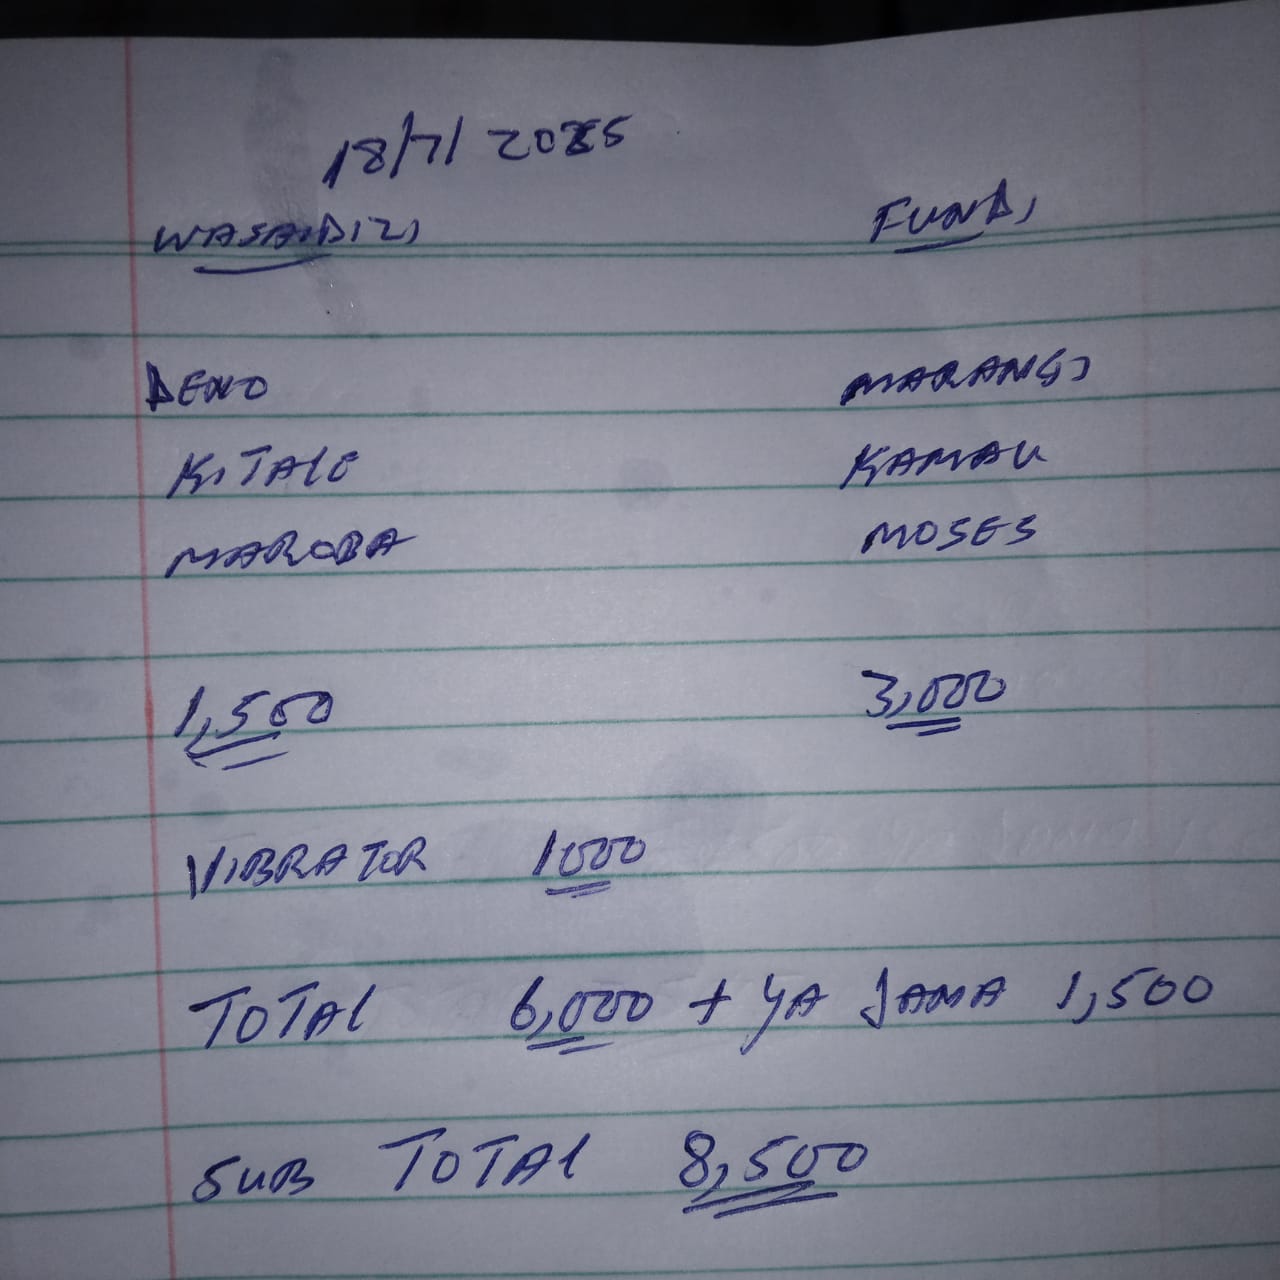 18/7/2025
WASAIDIZI FUNDI
DENO MARANGI
KITALE KAMAU
MAROBA MOSES
1,500 3,000
VIBRATOR 1000
TOTAL 6,000 + YA JAMA 1,500
SUB TOTAL 8,500